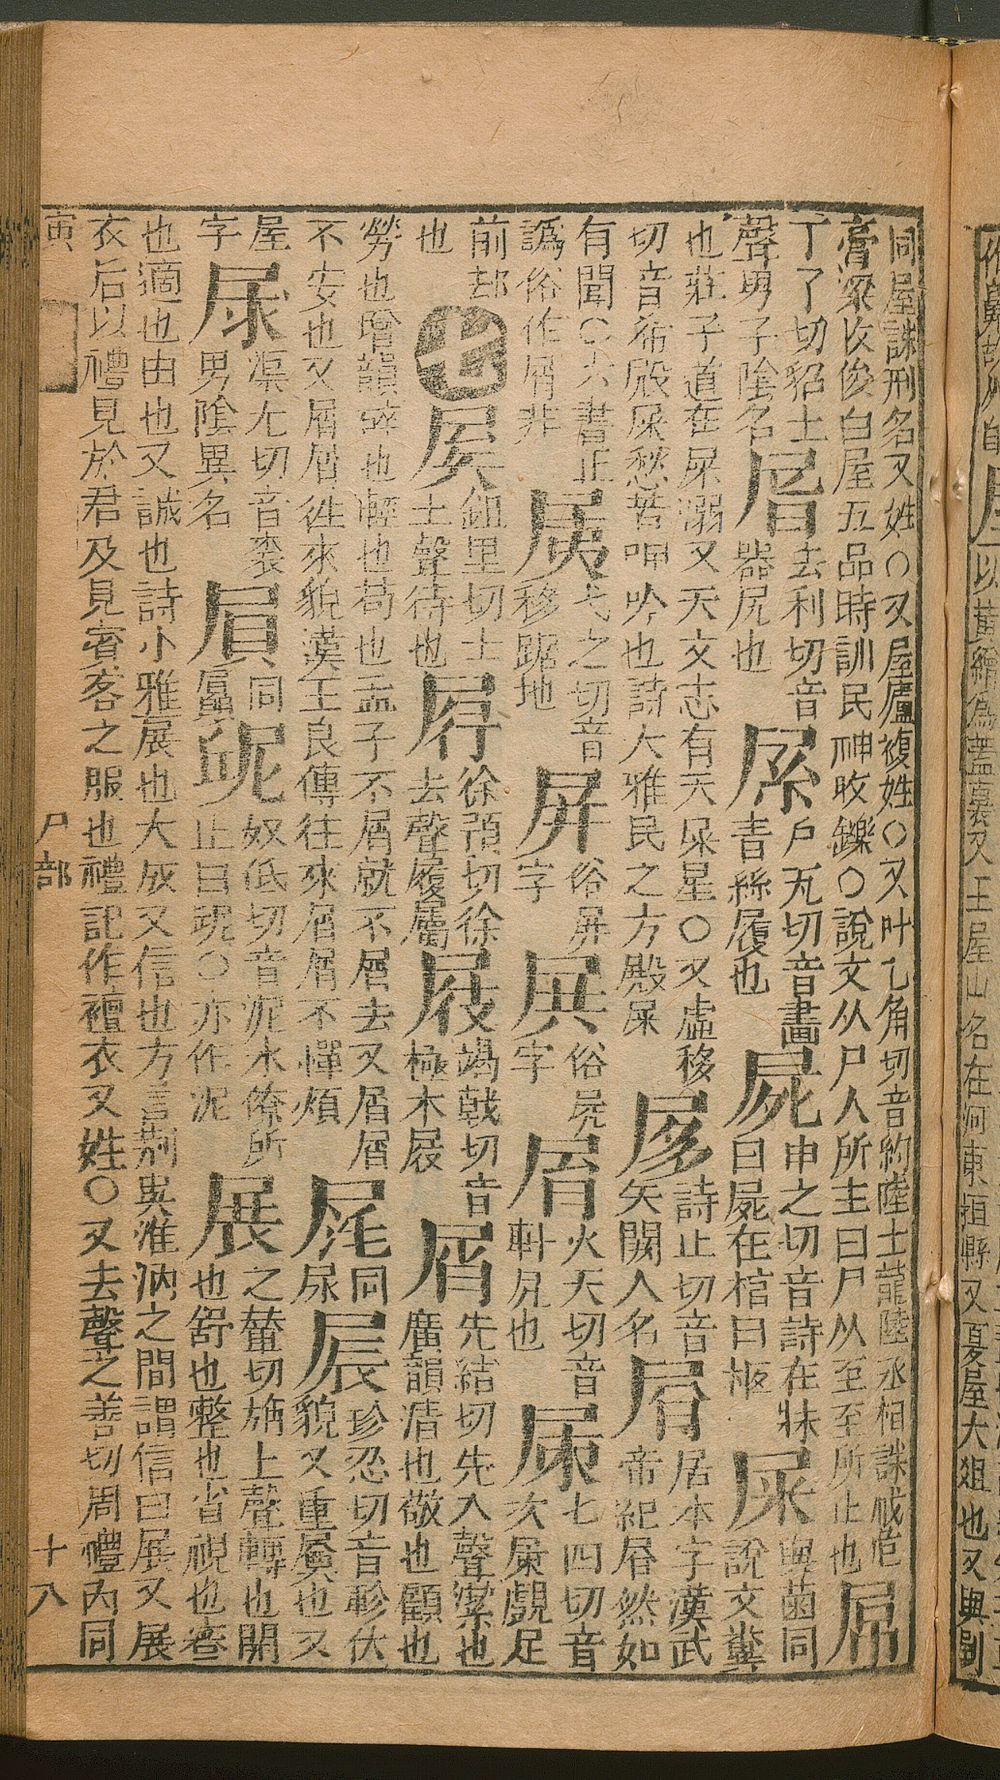 以黃繒為蓋裏又王屋山名在河東垣縣又夏屋大俎也又與剭
同屋誅刑名又姓○又屋廬複姓○又叶乙角切音約陸士龍陸丞相誄戒危
膏梁收俊白屋五品時訓民神收鑠○說文从尸人所主曰尸从至至所止也
屌
丁了切貂上
聲男子陰名
去利切音
器尻也
戶瓦切音畫
青絲履也
屍
申之切音詩在牀
曰屍在棺曰柩
屎
與菌同
說文糞
也莊子道在屎溺又天文志有天屎星○又虛移
切音希殿屎愁苦呻吟也詩大雅民之方殿屎
詩止切音
矢闕人名
居本字漢武
帝紀然如
有聞○六書正
譌俗作屑非
弋之切音
移踞地
屏
俗屏
字
俗屍
字
火天切音
軒也
七四切音
次覰足
前却
也
七
鉏里切士
上聲待也
徐預切徐
去聲履屬
屐
竭戟切音
極木屐
屑
先結切先入聲潔也
廣韻清也敬也顧也
勞也增韻碎也輕也苟也孟子不屑就不屑去又屑屑
不安也又屑屑徃來貌漢王良傳徃來屑屑不憚煩
同
尿
屒
珍忍切音軫伏
貌又重屒也又
屋
字
㞗
渠尤切音裘
男陰異名
屓
同
屭
奴低切音泥水僚所
止曰○亦作泥
展
之輦切旃上聲轉也開
也舒也整也省視也審
也適也由也又誠也詩小雅展也大成又信也方言荆吳淮汭之間謂信曰展又展
衣后以禮見於君及見賓客之服也禮記作襢衣又姓○又去聲之善切周禮內同
寅
尸部
十八